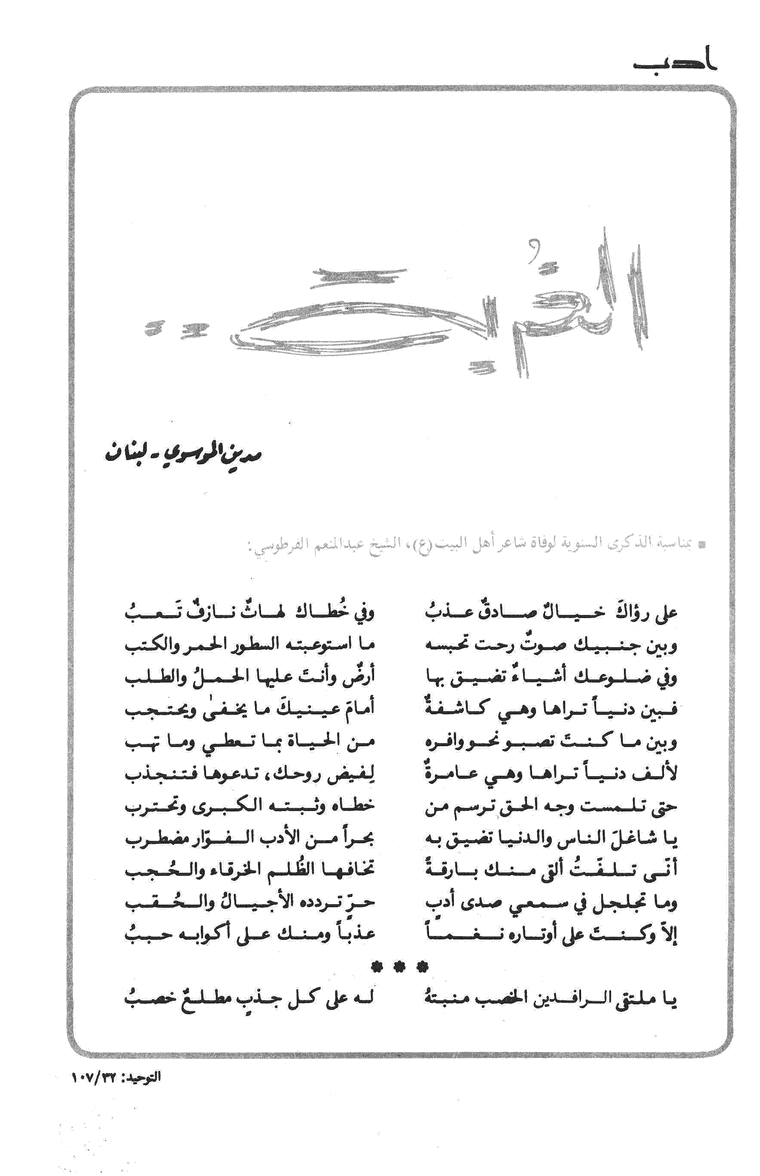 ادب
القُربى ..
مدين الموسوي - لبنان
■ بمناسبة الذكرى السنوية لوفاة شاعر أهل البيت (ع)، الشيخ عبدالمنعم الفرطوسي:
على رؤاكَ خيالٌ صادقٌ عذبُ وفي خُطاك لهاثٌ نازفٌ تَعبُ
وبين جنبيك صوتٌ رحت تحبسه ما استوعبته السطور الحمر والكتب
وفي ضلوعك أشياءٌ تضيق بها أرضٌ وأنتَ عليها الحملُ والطلب
فبين دنياً تراها وهي كاشفةٌ أمامَ عينيكَ ما يخفىٰ ويحتجب
وبين ما كنتَ تصبو نحو وافره من الحياة بما تعطي وما تهب
لألف دنياً تراها وهي عامرةٌ لِفيض روحك، تدعوها فتنجذب
حتى تلمست وجه الحق ترسم من خطاه وثبته الكبرى وتحترب
يا شاغلَ الناس والدنيا تضيق به بحراً من الأدب الفوّار مضطرب
أنّى تلفّتُ ألقى منك بارقةً تخافها الظُلم الخرقاء والحُجب
وما تجلجل في سمعي صدى أدبٍ حرّ تردده الأجيالُ والحُقب
إلاّ وكنتَ على أوتاره نغماً عذباً ومنك على أكوابه حببُ
* * *
يا ملتقى الرافدين الخصب منبتهُ له على كل جذبٍ مطلعٌ خصبُ
التوحيد: ٣٢/١٠٧